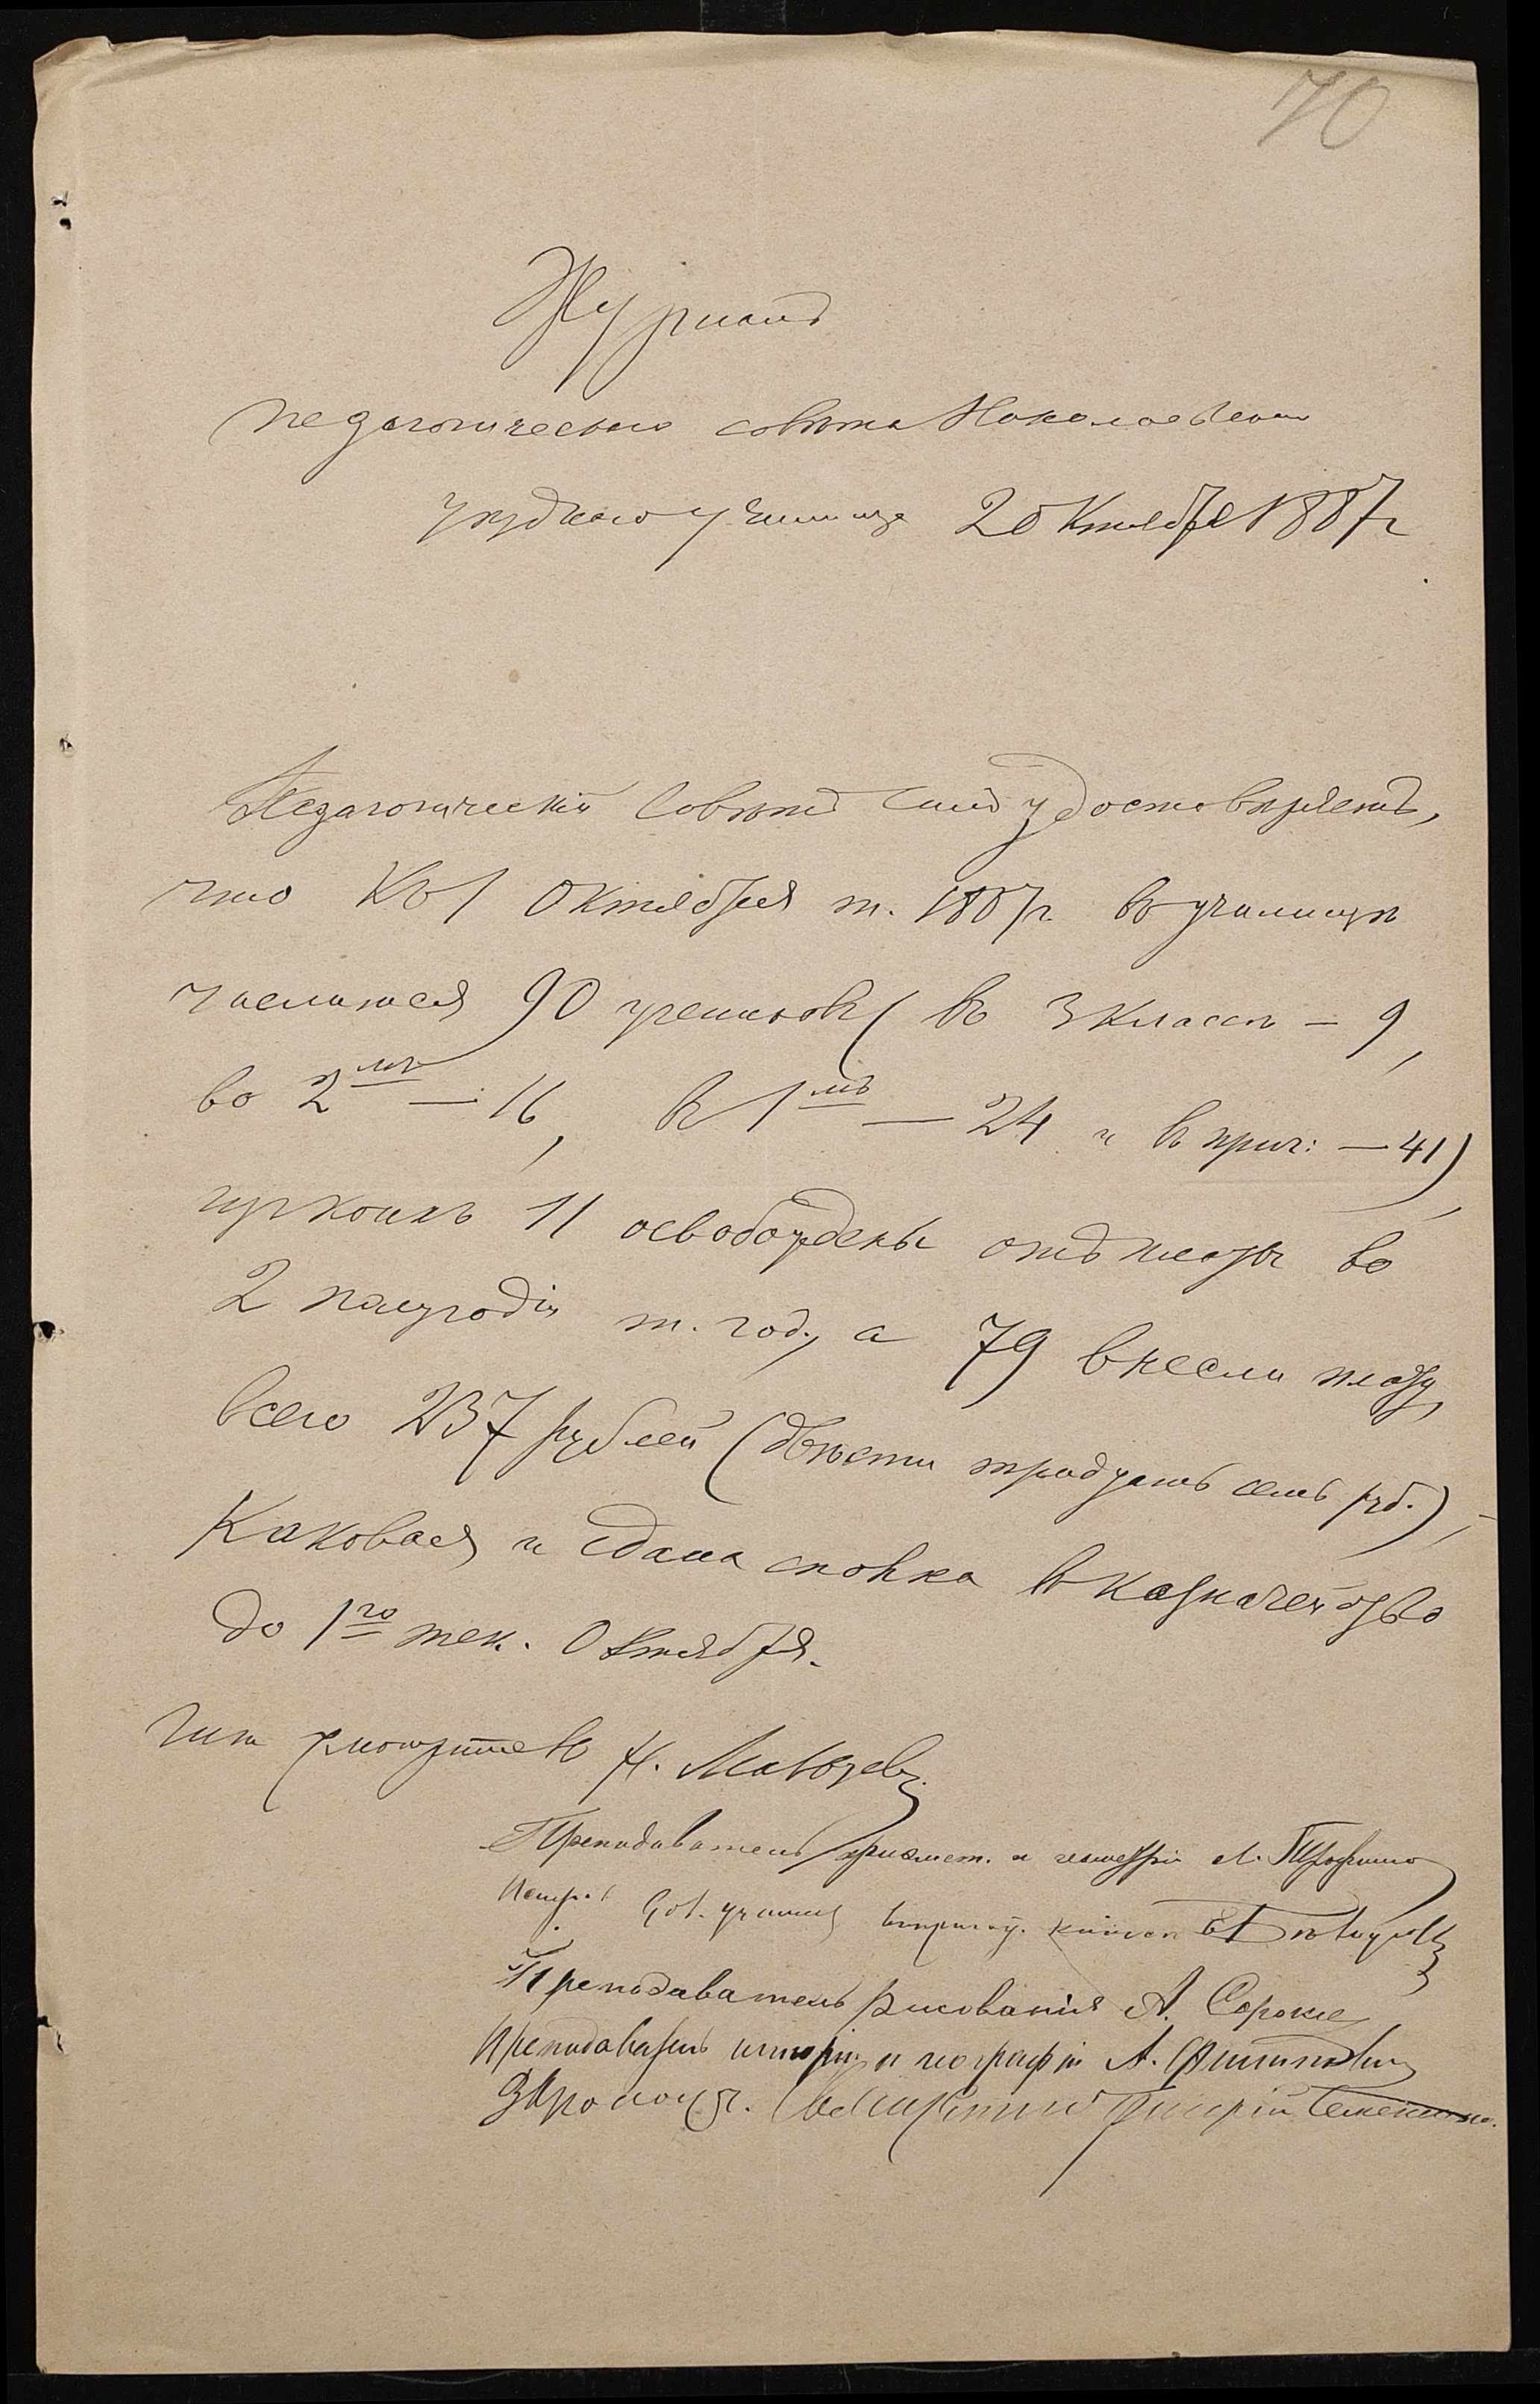 70
Журналъ
педагогическаго совѣта Николаевскаго
уѣзднаго училища 2 Октября 1887 г
Педагогическій Совѣтъ симъ удостовѣряетъ,
что къ 1 Октября т. 1887 г. въ училищѣ
числится 90 учениковъ (въ 3 классѣ – 9,
во 2мъ — 16, въ 1мъ — 24 и въ приг: — 41)
изъ коихъ 11 освобождены отъ платы во
2 полугодіи т. году, а 79 внесли плату,
всего 237 рублей (двѣсти тридцать семь руб.),
каковая и сдана сполна въ казначейство
до 1го тек. Октября.
Штат. смотритель Н.
Преподаватель арифмет. и геометріи
училища
Преподаватель рисованія А. Сорока
Преподаватель исторіи и географіи А.